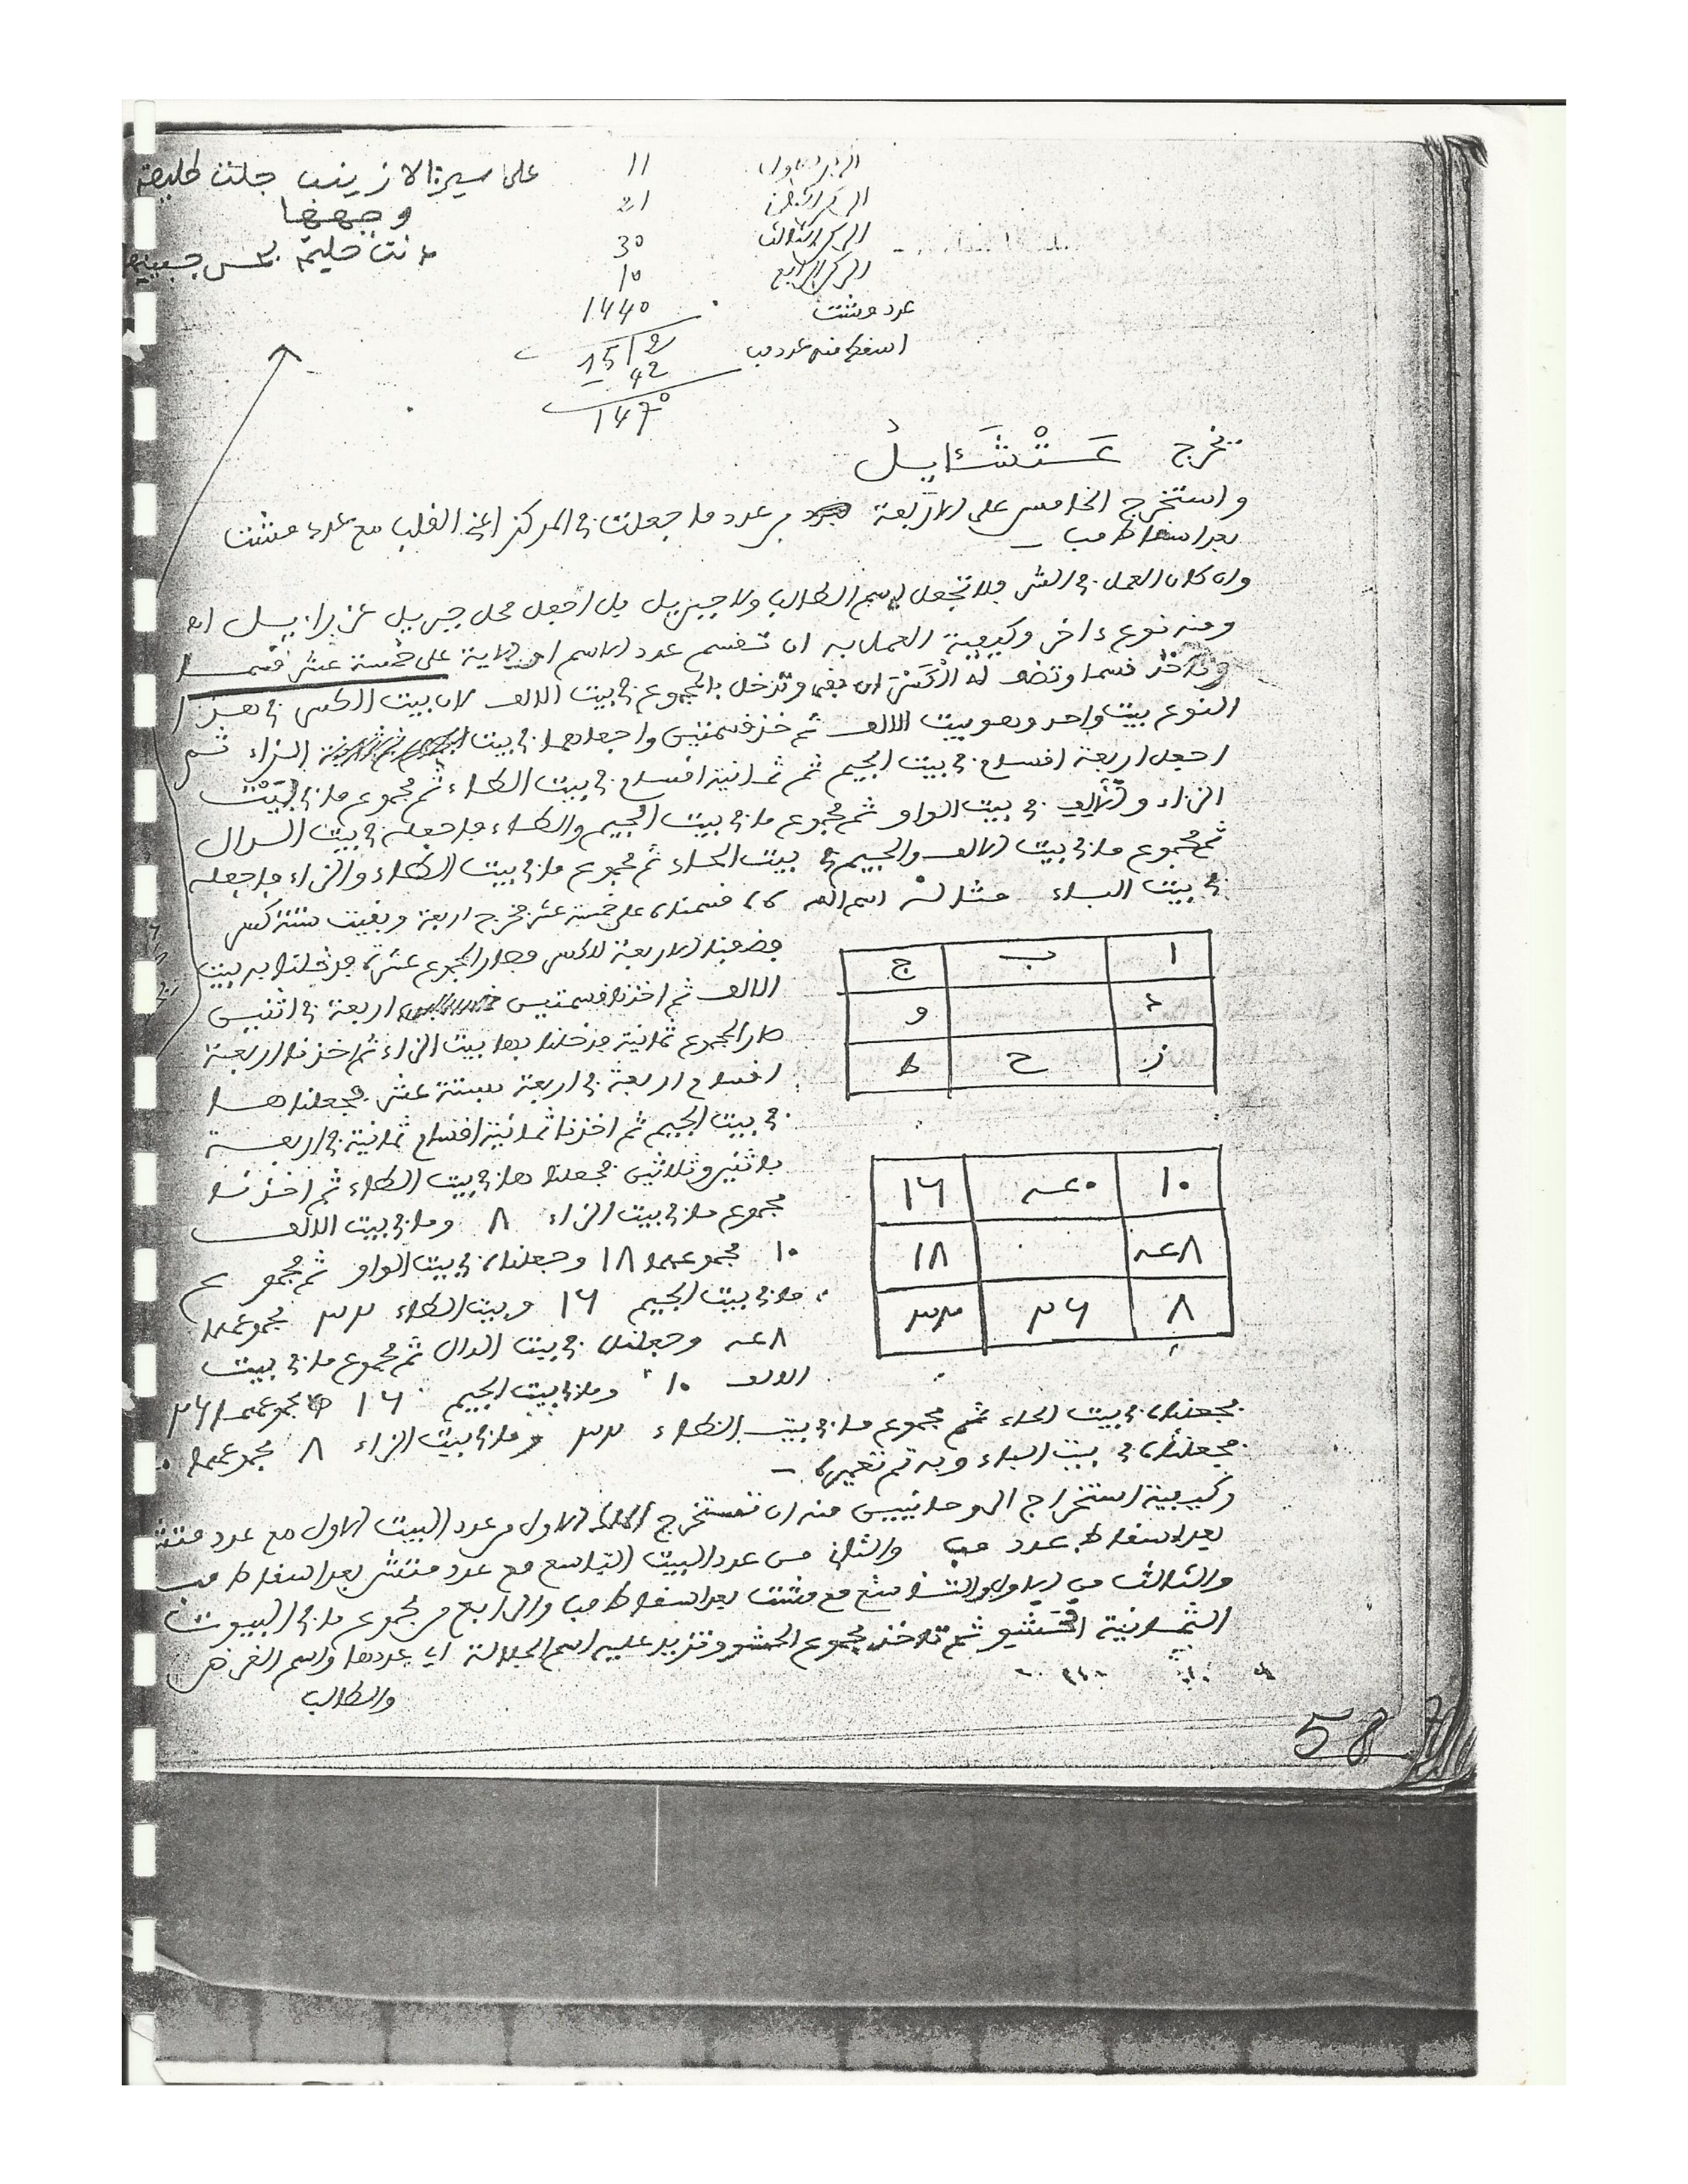 على سيرنا لا زينب جلت طليعة
وجهها
ءانت حليمة بحسن جبينها
المركز الاول 11
المركز الثاني 21
المركز الثالث 30
المركز الرابع 10
عدد وشت 1440
1512
اسقط منه عدد مب 42
1470
تخرج عَتْشَائِيلُ
واستخرج الخامس على الاربعة من عدد ما جعلت في المركز اعني القلب مع عدد
بعد اسقاط مب
وان كان العمل في الشر فلا تجعل اسم الطالب ولا جبريل بل اجعل محل جبريل عزراييل اه
ومنه نوع ءاخر وكيفية العمل به ان تقسم عدد الاسم او الاية على خمسة عشر قسما
وتاخذ قسما وتضف له الكسر ان بقي وتدخل بالمجموع في بيت الالف لان بيت الكسر في هذا
النوع بيت واحد وهو بيت الالف ثم خذ قسمتين واجعلهما في بيت الزاء ثم
اجعل اربعة اقسام في بيت الجيم ثم ثمانية اقسام في بيت الطاء ثم مجموع ما في بيت
الزاء والالف في بيت الواو ثم مجموع ما في بيت الجيم والطاء فاجعله في بيت الدال
ثم مجموع ما في بيت الالف والجيم في بيت الحاء ثم مجموع ما في بيت الطاء والزاء فاجعله
في بيت الباء مثاله اسم الله ٦٦ قسمناه على خمسة عشر فخرج اربعة وبقيت ستة كسر
فضفنا الاربعة للكسر فصار المجموع عشرة فدخلنا به بيت
الالف ثم اخذنا قسمتين اربعة في اثنين
صار المجموع ثمانية فدخلنا بها بيت الزاء ثم اخذنا اربعة
اقسام اربعة في اربعة بستة عشر فجعلناها
في بيت الجيم ثم اخذنا ثمانية اقسام ثمانية في اربعة
باثنين وثلاثين فجعلناها في بيت الطاء ثم اخذنا
مجموع ما في بيت الزاء ٨ وما في بيت الالف
١٠ مجموعهما ١٨ وجعلناه في بيت الواو ثم مجموع
ما في بيت الجيم ١٦ وبيت الطاء ٣٢ مجموعهما
٤٨ وجعلناه في بيت الدال ثم مجموع ما في بيت
الالف ١٠ وما في بيت الجيم ١٦ مجموعهما ٢٦
ا ب ج
د و
ز ح ط
١٠ ٤٠ ١٦
٤٨ ١٨
٨ ٢٦ ٣٢
فجعلناه في بيت الحاء ثم مجموع ما في بيت الطاء ٣٢ وما في بيت الزاء ٨ مجموعهما
فجعلناه في بيت الباء وبه تم تعميره
وكيفية استخراج الروحانيين منه ان تستخرج الاول من عدد البيت الاول مع عدد
بعد اسقاط عدد مب والثاني من عدد البيت التاسع مع عدد بعد اسقاط مب
والثالث من الاول والتاسع مع بعد اسقاط مب والرابع من مجموع ما في البيوت
الثمانية ثم تاخذ مجموع الحشو وتزيد عليه اسم الجلالة اي عددها واسم الغرض
والطالب
58